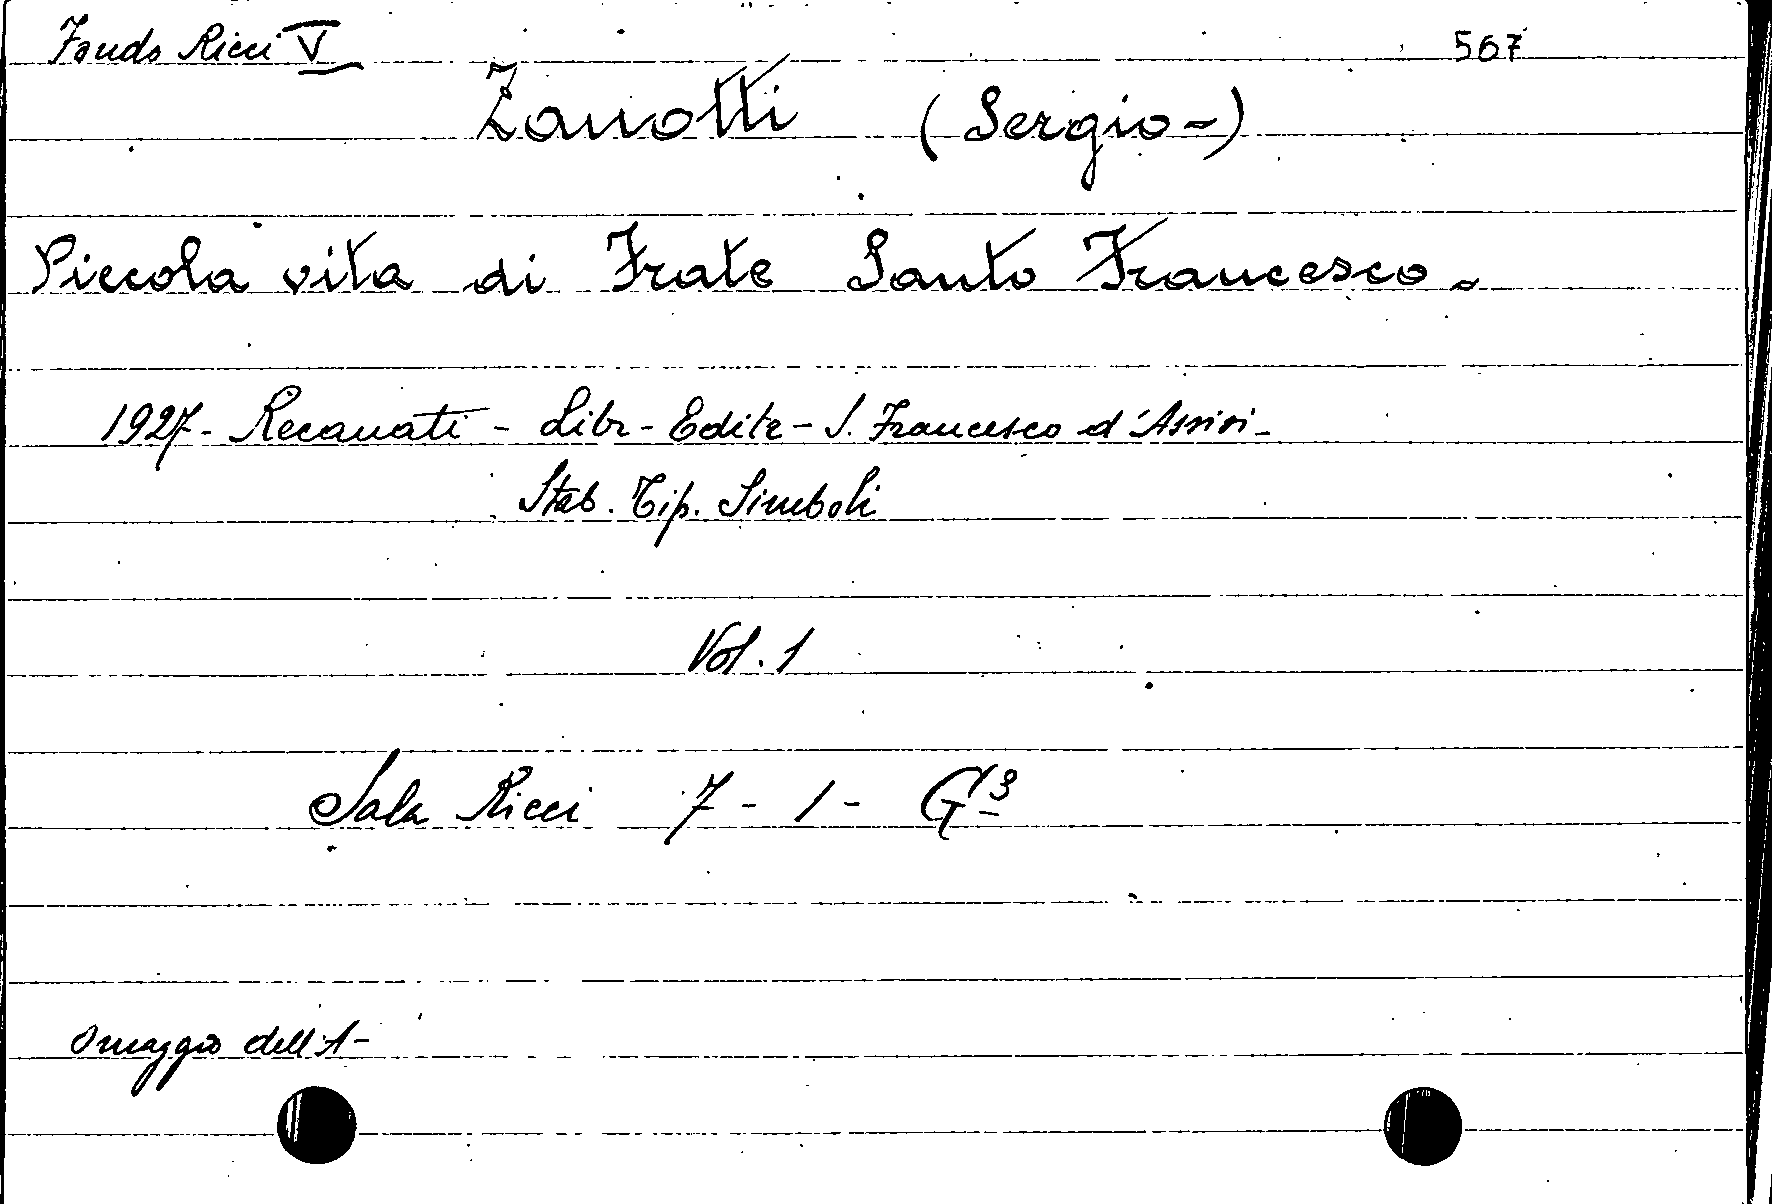 Fondo Ricci V 567
Zanotti (Sergio-)
Piccola vita di Frate Santo Francesco-
1927- Recanati - Libr- Editr- S. Francesco d'Assisi-
Stab. Tip. Simboli
Vol. 1
Sala Ricci 7 - 1 - G 13
Omaggio dell'A-